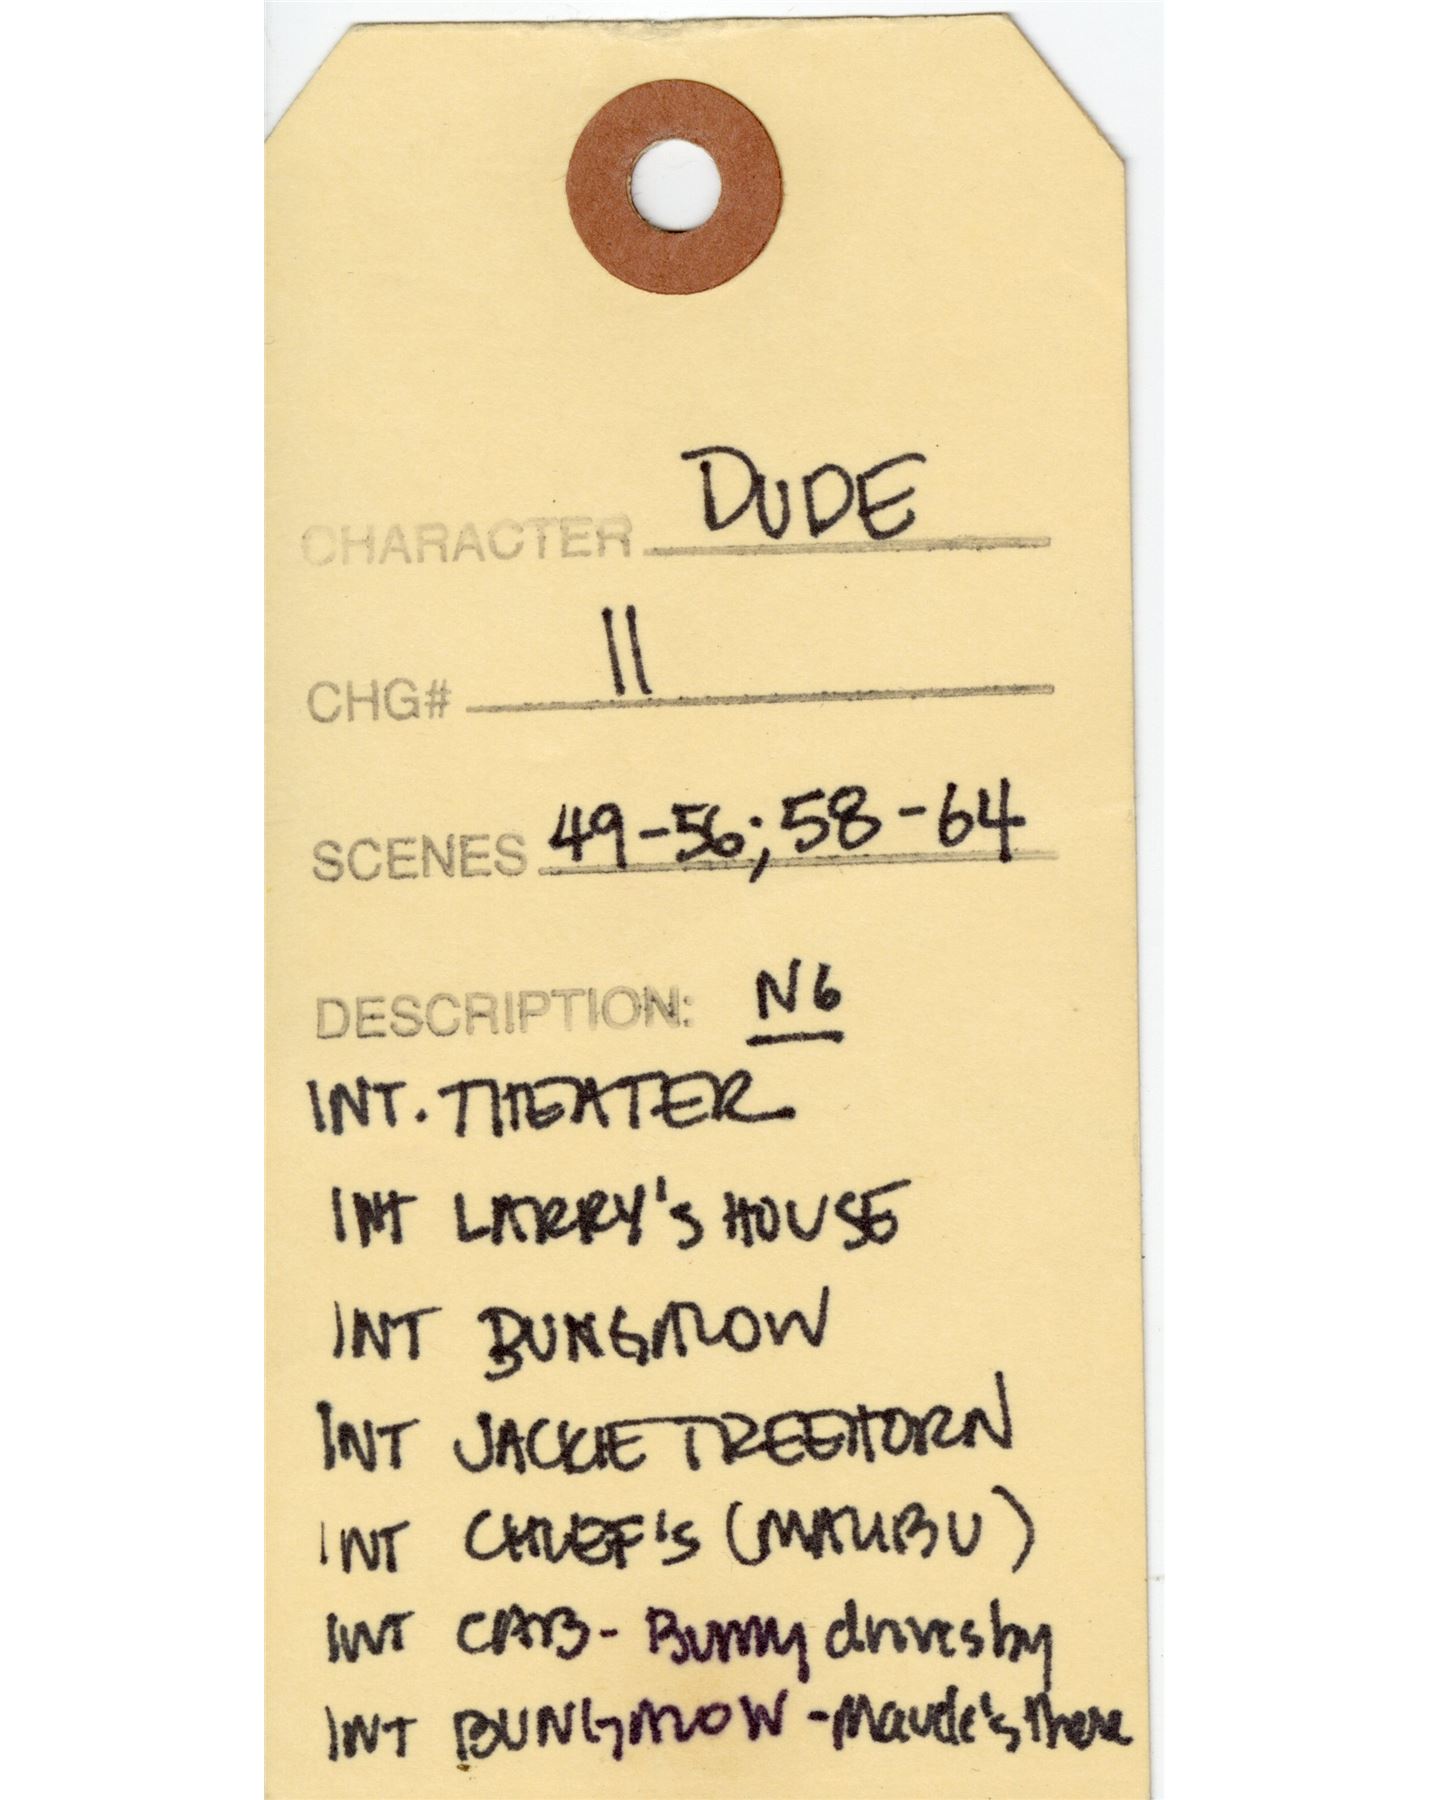 CHARACTER DUDE
CHG# 11
SCENES 49-56; 58-64
DESCRIPTION: N6
INT. THEATER
INT LARRY'S HOUSE
INT BUNGALOW
INT JACKIE TREEHORN
INT CHIEF'S (MALIBU)
INT CAB- Bunny drives by
INT BUNGALOW -Maude's there